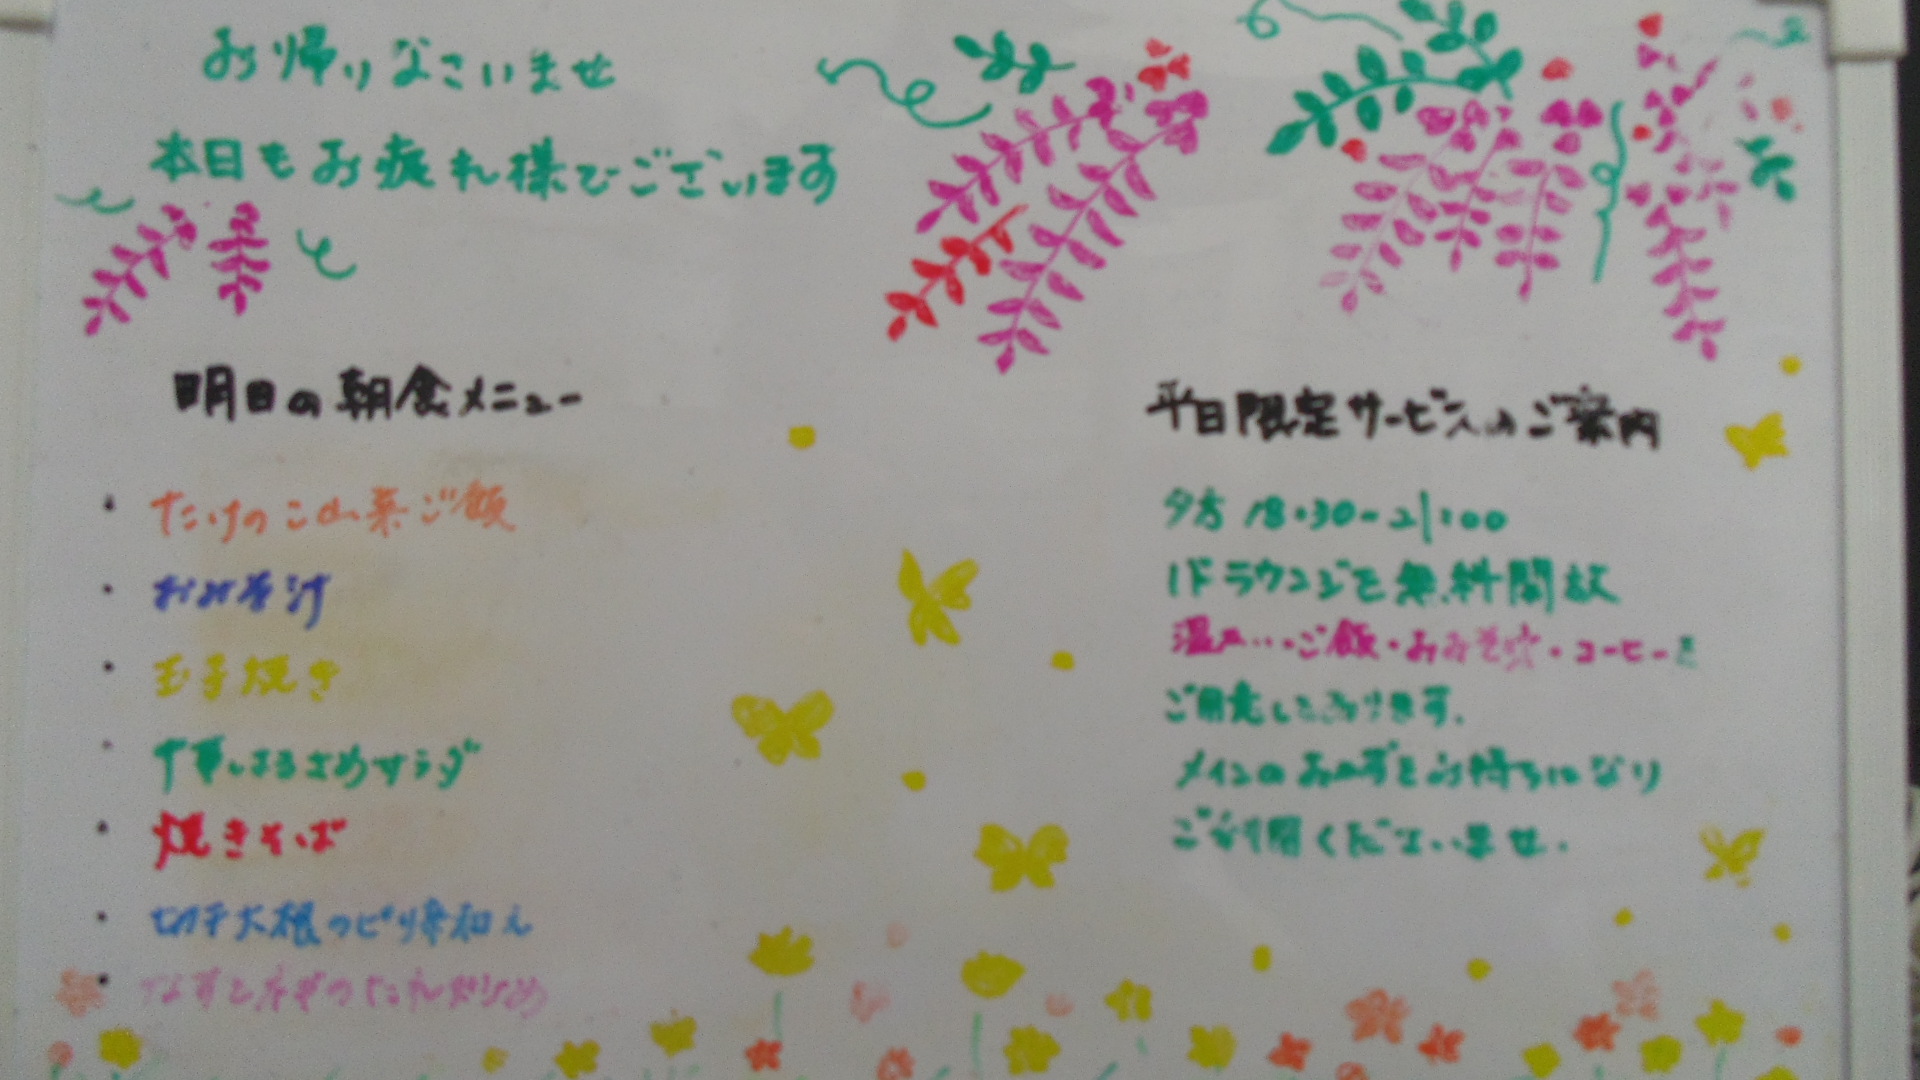 お帰りなさいませ
本日もお疲れ様でございます
明日の朝食メニュー
・たけのこ山菜ご飯
・おみそ汁
・玉子焼き
・中華はるさめサラダ
・焼きそば
・切干大根のピリ辛和え
・なすとネギのたれ炒め
平日限定サービスのご案内
夕方 18:30-21:00
1Fラウンジを無料開放
温かい・ご飯・おみそ汁・コーヒーを
ご用意しております。
メインのおかずをお持ちになり
ご利用くださいませ。